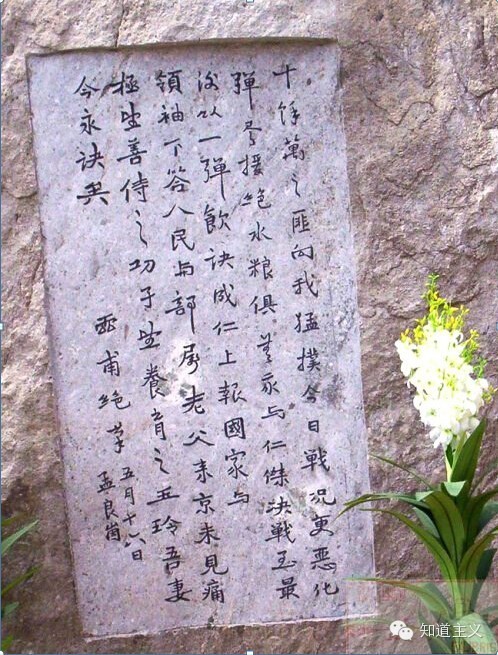 十餘萬之匪向我猛撲今日戰況更惡化
彈尽援絶水粮俱無余与仁傑決戰至最
後以一彈飲訣成仁上報國家与
領袖下答人民与部屬老父來京未見痛
極望善待之幼子望養育之玉玲吾妻
今永訣矣
灵甫絶筆 五月十六日
孟良崮
知道主义